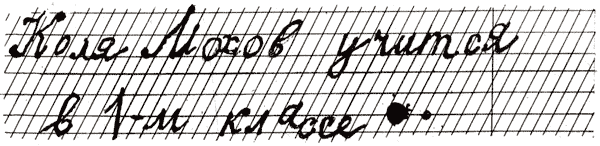 Коля Мохов учится
в 1-м классе.